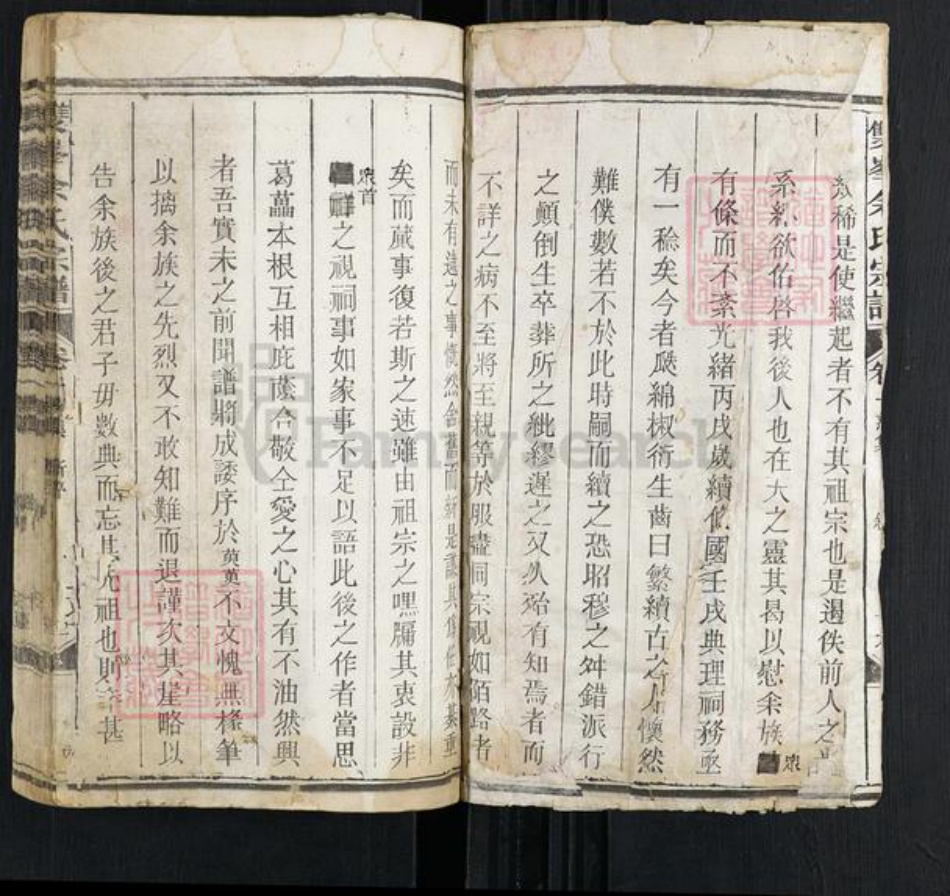 雙峯余氏宗譜
稀是使繼起者不有其祖宗也是遏佚前人之
系紛欲佑啓我後人也在天之靈其曷以慰余族
眾
有條而不紊光緒丙戌歲續修國壬戌典理祠務亟
有一稔矣今者瓞綿椒衍生齒日繁續古之人懷然
難僕數若不於此時嗣而續之恐昭穆之舛錯派行
之顛倒生卒葬所之紕繆遲之又久殆有知焉者而
不詳之病不至將至親等於服盡同宗視如陌路者
而未有遠之事慨然舍舊而新是謀其
矣而蕆事復若斯之速雖由祖宗之嘿牖其衷設非
眾首
之視祠事如家事不足以語此後之作者當思
葛藟本根互相庇蔭合敬仝愛之心其有不油然興
者吾實未之前聞譜將成諉序於萸萸不文愧無椽筆
以摛余族之先烈又不敢知難而退謹次其崖略以
告余族後之君子毋數典而忘其祖也則甚
雙峯余氏宗譜
FamilySearch